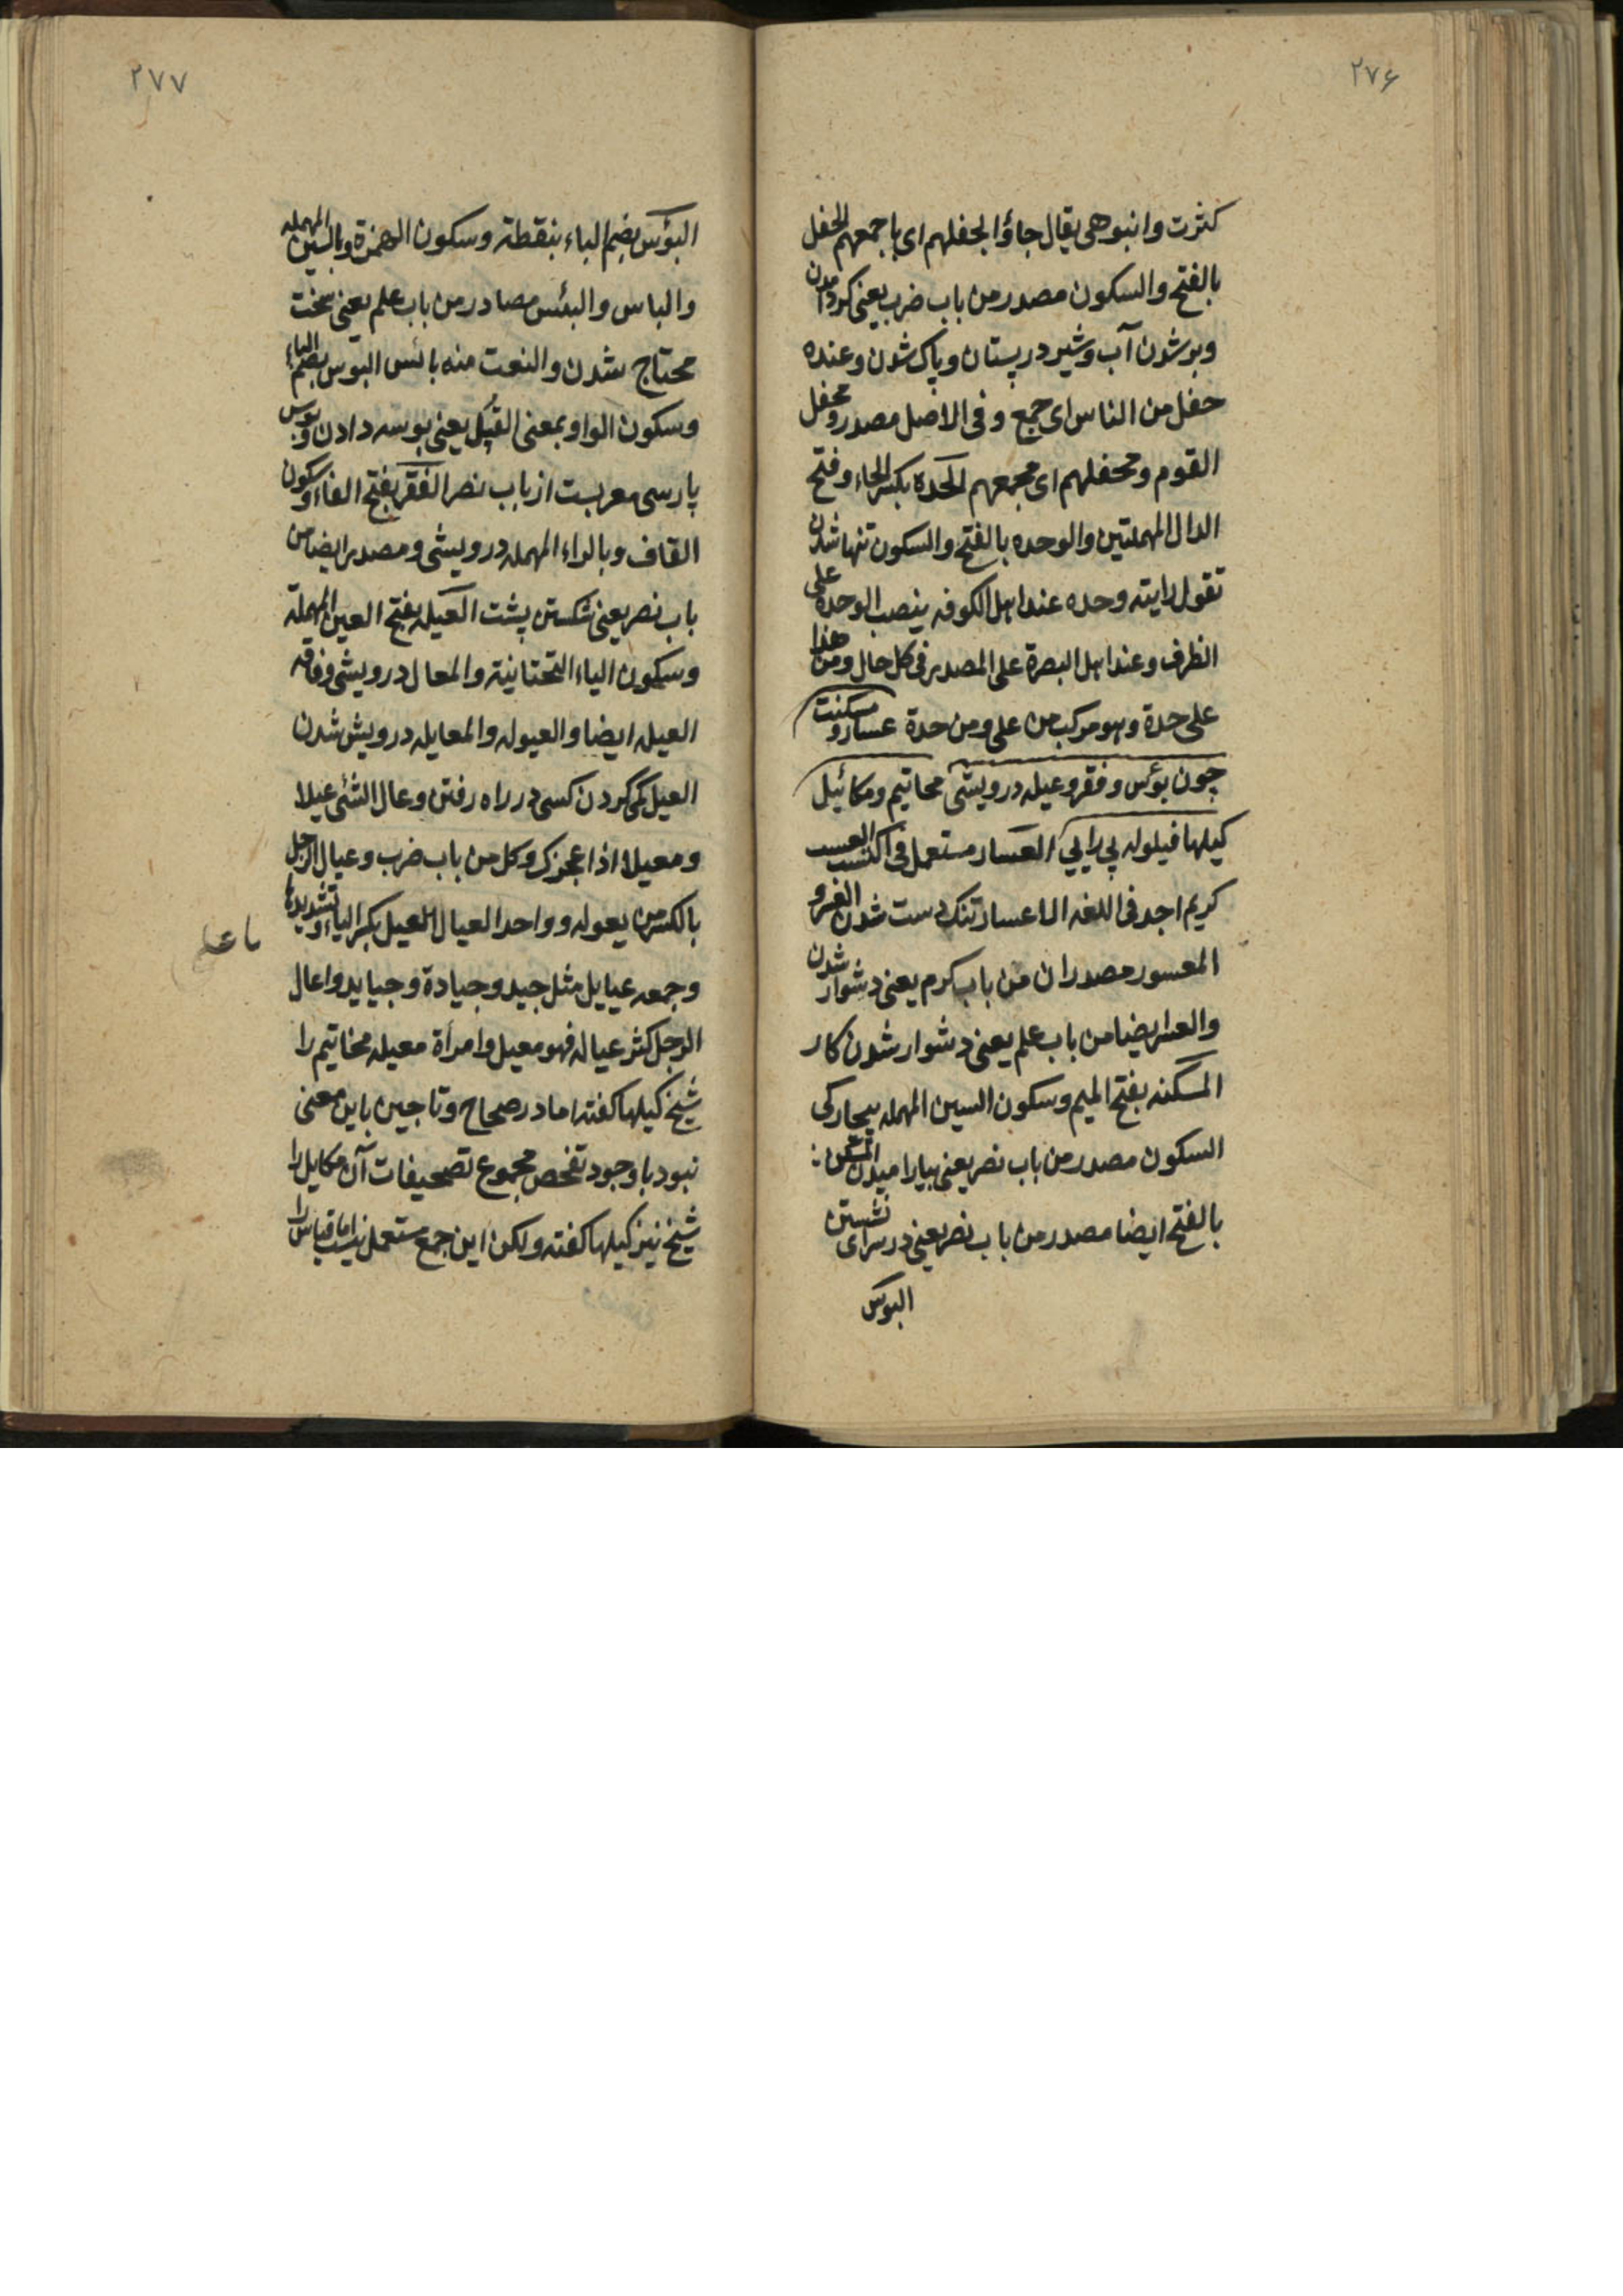 ۲۷۶
كثرت وانبوهى يقال جاؤا بحفلهم اى باجمعهم الحفل
بالفتح والسكون مصدر من باب ضرب يعنى كرد آمدن
وبر شدن آب وشير در پستان وپاک شدن وعنده
حفل من الناس اى جمع وفى الاصل مصدر ومحفل
القوم ومحفلهم اى مجمعهم الحدة بكسر الحاء وفتح
الدال المهملتين والوحده بالفتح والسكون تنها شدن
تقول رايته وحده عند اهل الكوفه ينصب الوحده على
الظرف وعند اهل البصرة على المصدر فى كل حال ومن هذا
على حدة وهو مركب من على ومن حدة عسار ومسكنت
چون بؤس وفقر وعيله درويشى محاتيم ومكائيل
كيلها فيلوله پى رايى العسار مستعمل فى
كريم اجد فى اللغه الا اعسار تنک دست شدن العسر و
المعسور مصدران من باب كرم يعنى دشوار شدن
والعسر ايضا من باب علم يعنى دشوار شدن كار
المسكنه بفتح الميم وسكون السين المهمله بيچاركى
السكون مصدر من باب نصر يعنى بيارا ميدن السكن
بالفتح ايضا مصدر من باب نصر يعنى در سراى نشستن
البوس
۲۷۷
البؤس بضم الباء بنقطة وسكون الهمزة وبالسين المهمله
والباس والبئس مصادر من باب علم يعنى سخت
محتاج شدن والنعت منه بائس البوس بضم الباء
وسكون الواو بمعنى القبل يعنى بوسه دادن وبوس
پارسى معربست از باب نصر الفقر بفتح الفاء وسكون
القاف وبالراء المهمله درويشى ومصدر ايضا من
باب نصر يعنى شكستن پشت العيله بفتح العين المهملة
وسكون الياء التحتانية والمعال درويشى وفاقه
العيله ايضا والعيوله والمعايله درويش شدن
العيل كمى كردن كسى در راه رفتن وعال الشئى عيلا
ومعيلا اذا عجزک وكل من باب ضرب وعيال الرجل
بالكسر من يعوله وواحد العيال العيل بكسر الياء وتشديدها
وجمعه عيايل مثل جيد وجيادة وجيايد واعال
الرجل كثر عياله فهو معيل وامرأة معيله مخاتيم را
شيخ كيلها كفته اما در صحاح وتاجين باين معنى
نبود باوجود تفحص مجموع تصحيفات آن مكايل را
شيخ نيز كيلها كفته ولكن اين جمع مستعمل نيست اما قياس را